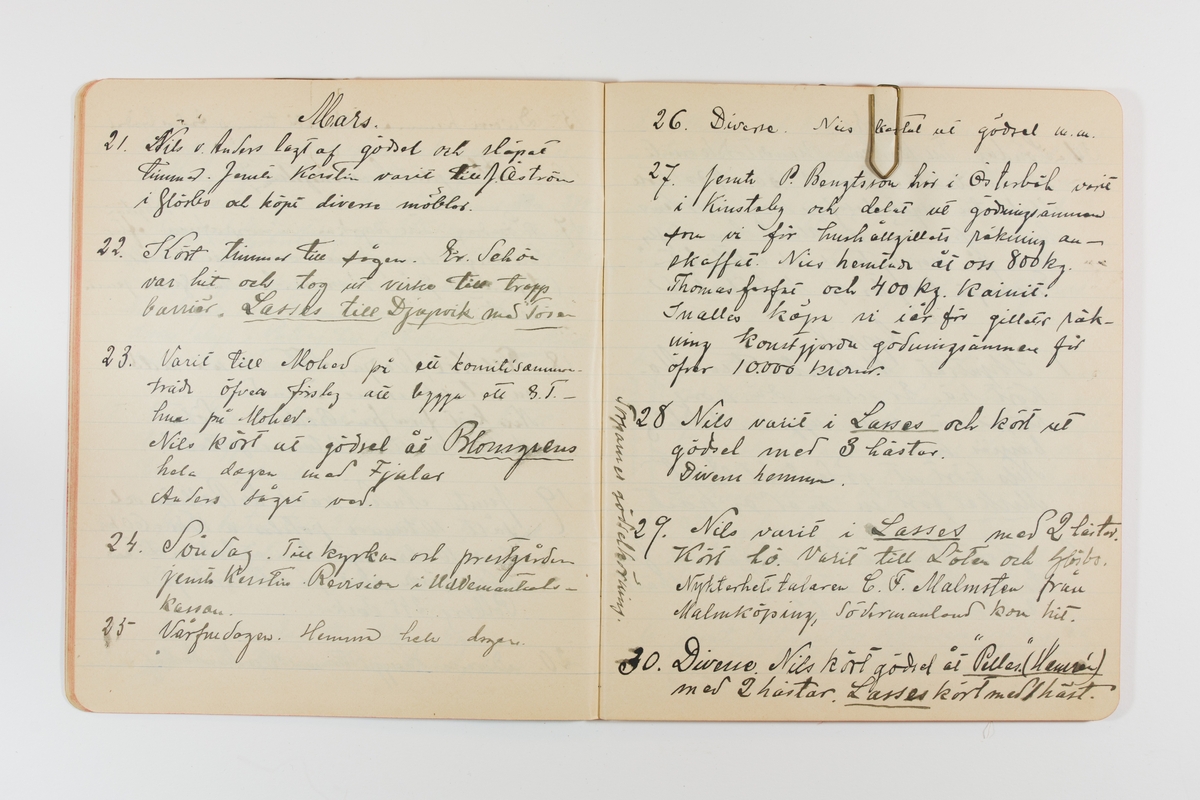 Mars.
21. Nils o. Anders lagt af gödsel och släpat
timmer. Jemte Kerstin varit till J. Åström
i Florbo och köpt diverse möbler.
22. Kört timmer till sågen. Er. Schön
var hit och tog ut virke till trapp
barriär. Lasses till Djupvik med
23. Varit till Mohed på ett komitésamman-
träde öfver förslag att bygga ett G.T.-
hus på Mohed.
Nils kört ut gödsel åt Blomgrens
hela dagen med Fjalar
Anders sågat ved.
24. Söndag. Till kyrkan och prestgården
jemte Kerstin. Revision i
kassan.
25 Vårfrudagen. Hemma hela dagen.
26. Diverse. Nils kastat ut gödsel m.m.
27. Jemte P. Bengtsson här i Österböle varit
i Kinstaby och delat ut gödningsämnen
som vi för hushållgillets räkning an-
skaffat. Nils hemtade åt oss 800 kg.
Thomasfosfat och 400 kg. Kainit.
Inalles köpa vi i år för gillets räk-
ning konstgjorda gödningsämnen för
öfver 10.000 kronor.
28 Nils varit i Lasses och kört ut
gödsel med 3 hästar.
Diverse hemma.
29. Nils varit i Lasses med 2 hästar.
Kört hö. Varit till Löten och Florbo.
Nykterhetstalaren C. F. Malmsten från
Malmköping, Södermanland kom hit.
30. Diverse. Nils kört gödsel åt "Pelles" (Hemrén)
med 2 hästar. Lasses kört med 1 häst.
gödselkörning.